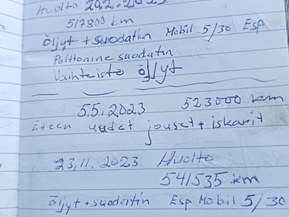 Huolto 20.2.2023
517800 km
Öljyt + suodatin Mobil 5/30 Esp
Polttoaine suodatin
Vaihteisto öljyt
5.5.2023 523000 km
Eteen uudet jouset + iskarit
23.11.2023 Huolto
541535 km
Öljyt + suodatin Esp Mobil 5/30